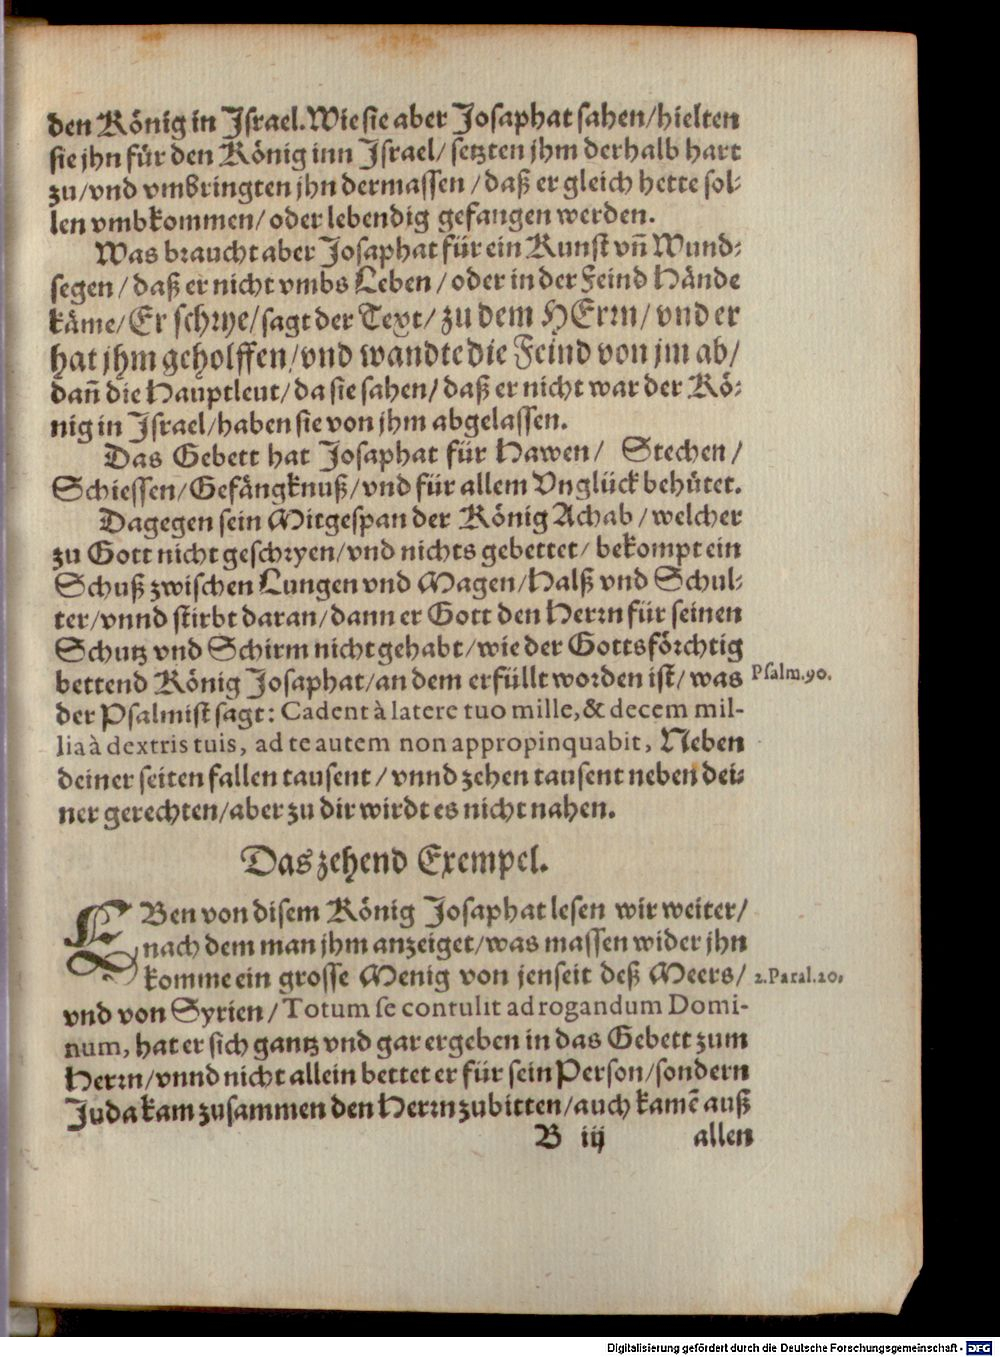 den König in Jsrael. Wie sie aber Josaphat sahen/hielten
sie jhn für den König inn Jsrael/ setzten jhm derhalb hart
zu/vnd vmbringten jhn dermassen/daß er gleich hette sol-
len vmbkommen/ oder lebendig gefangen werden.
Was braucht aber Josaphat für ein Kunst vn̄ Wund-
segen/ daß er nicht vmbs Leben/ oder in der Feind Hände
käme/ Er schrye/ sagt der Text/ zu dem HErrn/ vnd er
hat jhm geholffen/vnd wandte die Feind von jm ab/
dan̄ die Hauptleut/da sie sahen/ daß er nicht war der Kö-
nig in Jsrael/haben sie von jhm abgelassen.
Das Gebett hat Josaphat für Hawen/ Stechen/
Schiessen/Gefängknuß/vnd für allem Vnglück behütet.
Dagegen sein Mitgespan der König Achab/welcher
zu Gott nicht geschryen/vnd nichts gebettet/ bekompt ein
Schuß zwischen Lungen vnd Magen/Halß vnd Schul-
ter/vnnd stirbt daran/dann er Gott den Herrn für seinen
Schutz vnd Schirm nicht gehabt/wie der Gottsförchtig
bettend König Josaphat/an dem erfüllt worden ist/ was
Psalm.90.
der Psalmist sagt: Cadent à latere tuo mille, & decem mil-
lia à dextris tuis, ad te autem non appropinquabit, Neben
deiner seiten fallen tausent/ vnnd zehen tausent neben dei-
ner gerechten/aber zu dir wirdt es nicht nahen.
Das zehend Exempel.
EBen von disem König Josaphat lesen wir weiter/
nach dem man jhm anzeiget/was massen wider jhn
komme ein grosse Menig von jenseit deß Meers/
2.Paral.20.
vnd von Syrien/ Totum se contulit ad rogandum Domi-
num, hat er sich gantz vnd gar ergeben in das Gebett zum
Herrn/vnnd nicht allein bettet er für sein Person/sondern
Juda kam zusammen den Herrn zubitten/auch kamē auß
B iij
allen
Digitalisierung gefördert durch die Deutsche Forschungsgemeinschaft - DFG